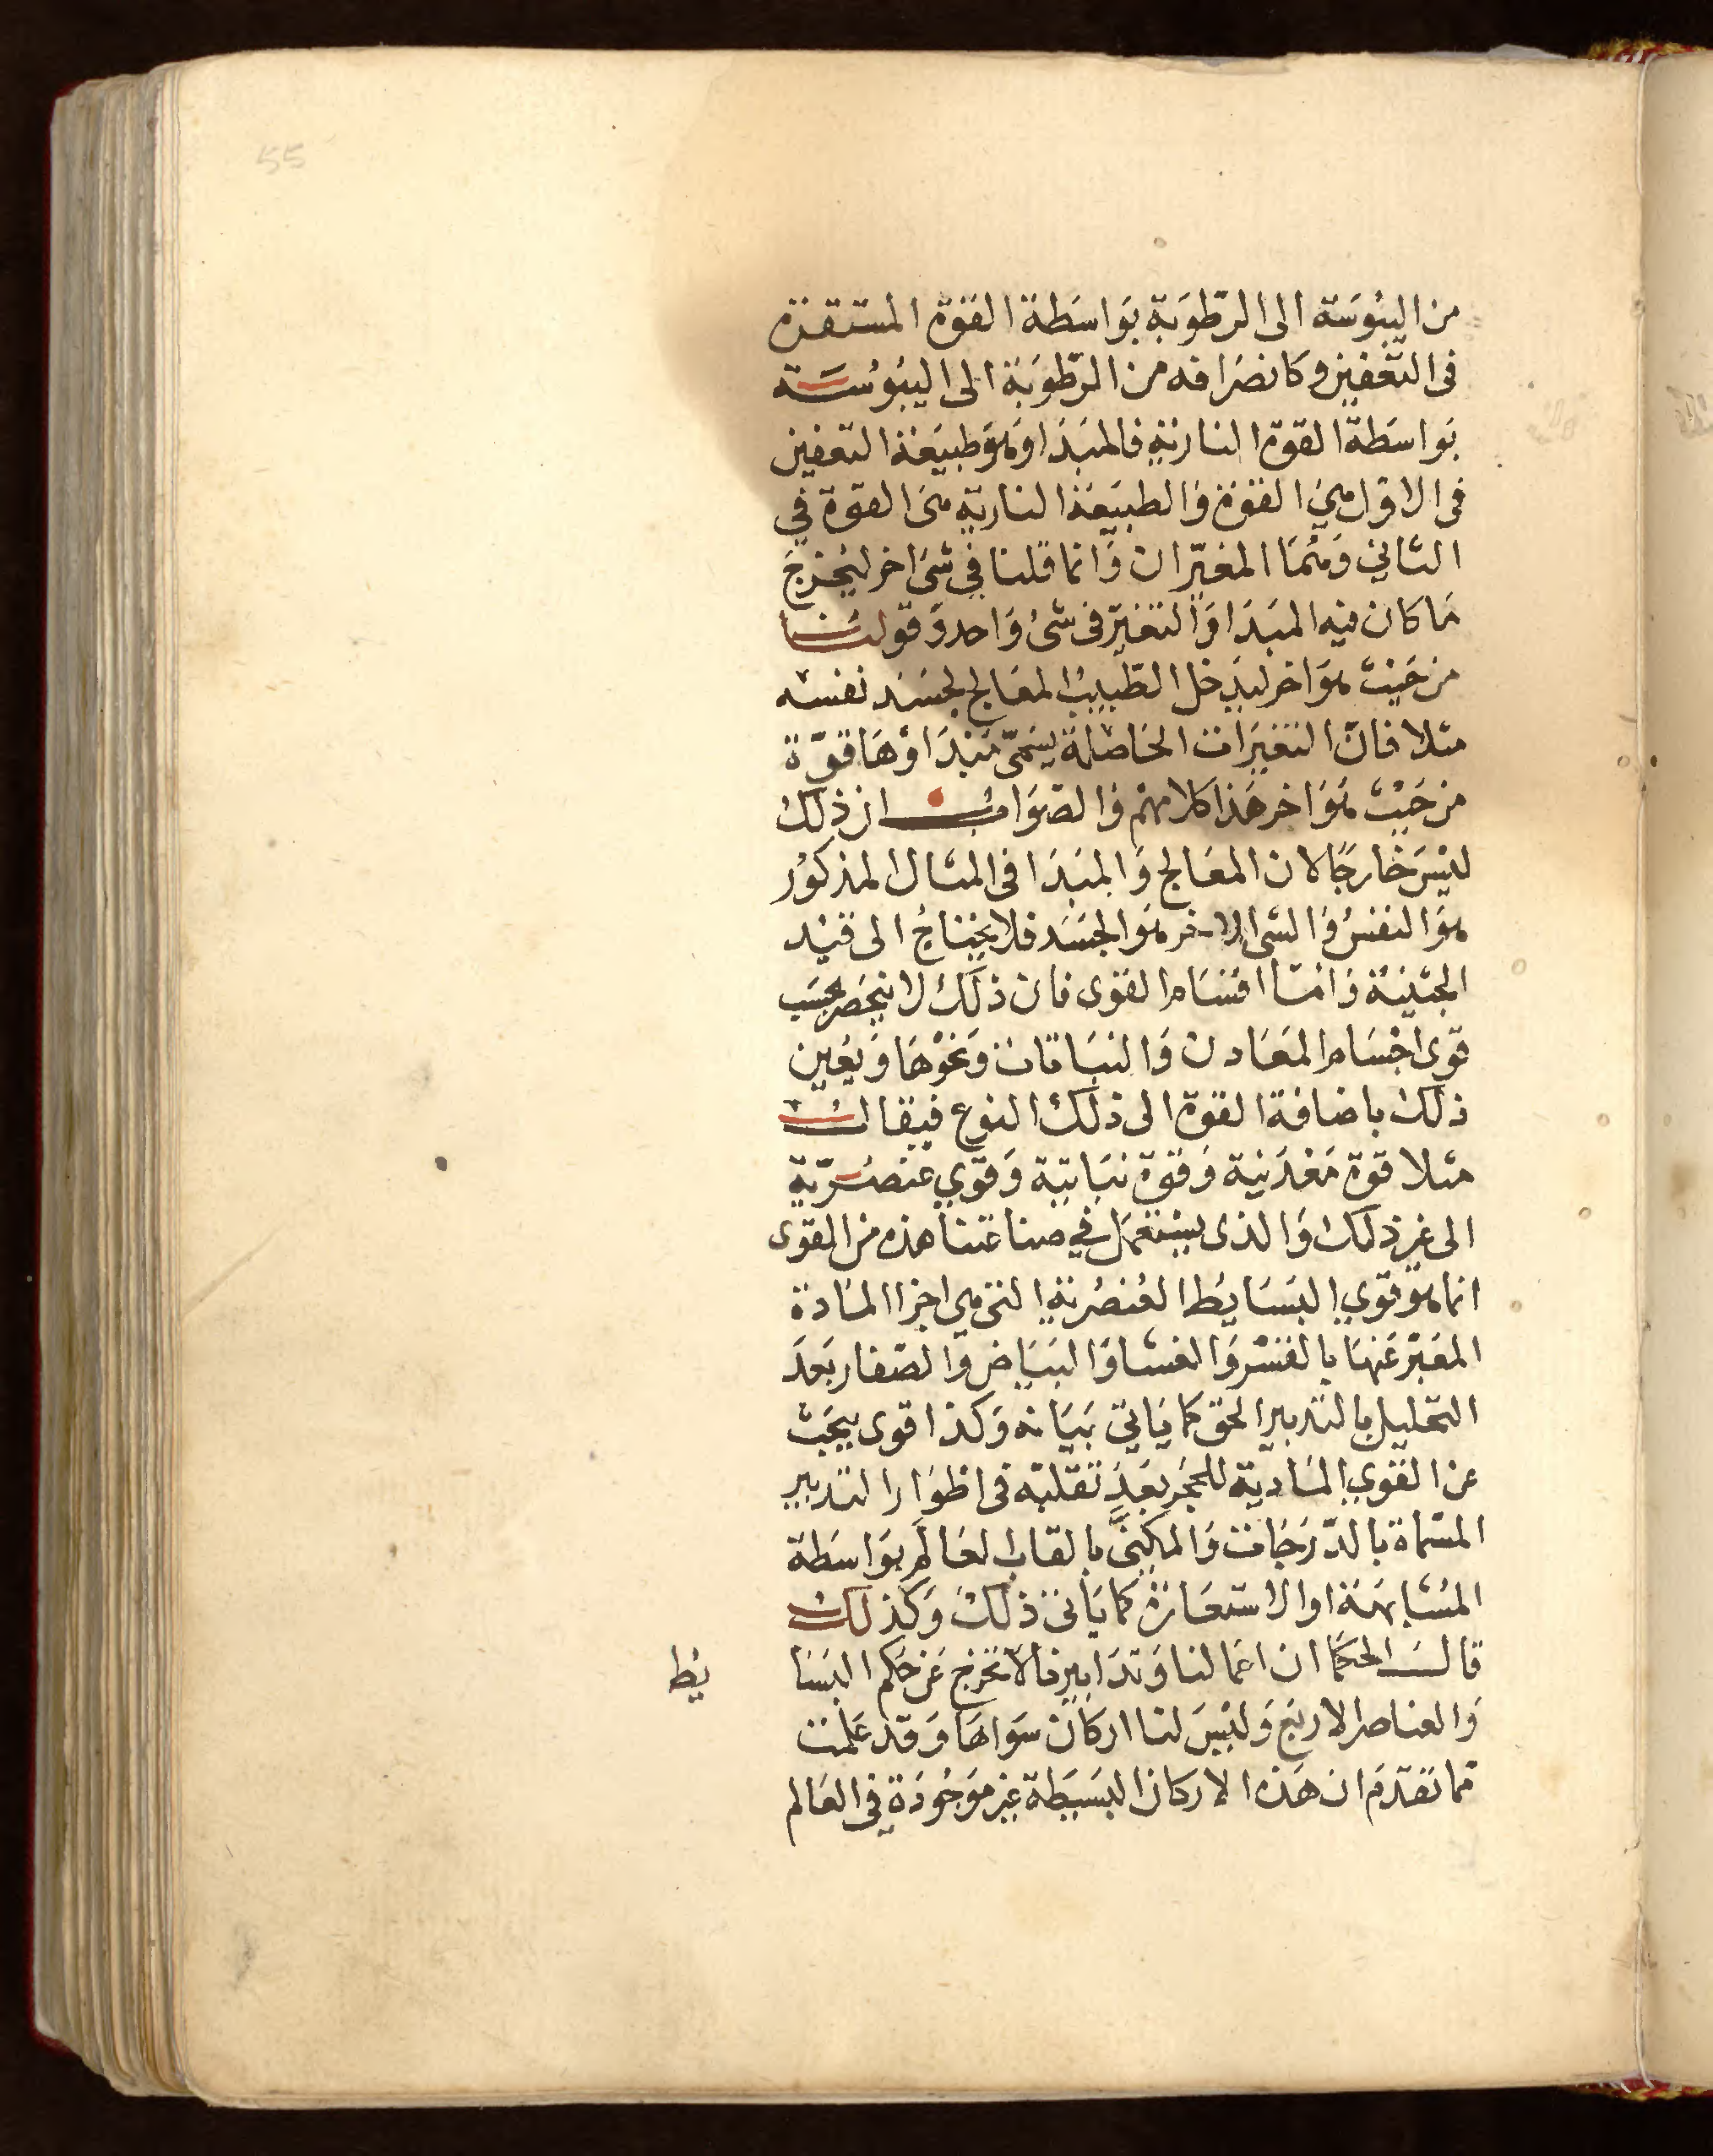 55
من اليبُوسَة الى الرّطوبَة بوَاسَطة القوة المستقرة
فى التعفين وكانصرَافه من الرّطوبَة الى اليبُوسَة
بوَاسَطة القوة النارية فالمبدَا وَهو طبيعَة التعفين
فى الاول هي القوة وَالطبيعَة النارية هى القوة في
الثاني وَهُمَا المغيّران وَانما قلنا في شئ اخر ليخرج
مَا كان فيه المبدَا وَالتغيّر فى شئ وَاحد وَقولنا
من حَيث هوَ اخر ليدخل الطّبيب المعَالج لجسَد نفسه
مثلا فانّ التغيرَات الحَاصلة يسَمّى مَبْدَاؤهَا قوّة
من حَيْث هوَ اخر هَذا كلامهم وَالصّوَاب ان ذلك
ليْسَ خارجًا لان المعَالج وَالمبدَا فى المثال المذكوُر
هوَ النفسُ وَالشى الاخر هوَ الجسَد فلا يحتاجُ الى قيْد
الحيثيّة وَامّا اقسَام القوى فان ذلك لا ينحصر بحسَب
قوى اجْسَام المعَادن وَالنبَاتات وَنحْوهَا وَيعين
ذلك باضافة القوة الى ذلك النوع فيقال
مثلا قوة مَعْدَنية وَقوة نبَاتية وَقوي عنصُريّة
الى غير ذلك وَالذى يستعمَل في صناعتنا هذه من القوى
انما هو قوي البسَايُط العُنصُرية التى هي اجزا المادة
المعَبّر عَنهَا بالقشر وَالغشا وَالبيَاض وَالصّفار بعَدَ
التحليل بالتدبير الحق كما يَاتي بَيَانه وَكذا قوى يبحَث
عن القوي المادية للحجَر بعَد تقلبّه فى اطوَار التدبير
المسمّاة بالدّرَجَات وَالمكنيَّ بالقاب العَالَم بوَاسَطة
المُشَابهَة او الاستعَارَة كما يَاتى ذلك وَكذلك
قالـــ الحكما ان اعمالنا وَتدَابيرنا لا تخرج عَن حَكم البسَا يُط
وَالعناصر الاربَع وَليْسَ لنا اركان سَواهَا وَقد عَلمْت
مما تقدّم ان هَذه الاركان البسَيطة غير مَوجُودَة في العَالم